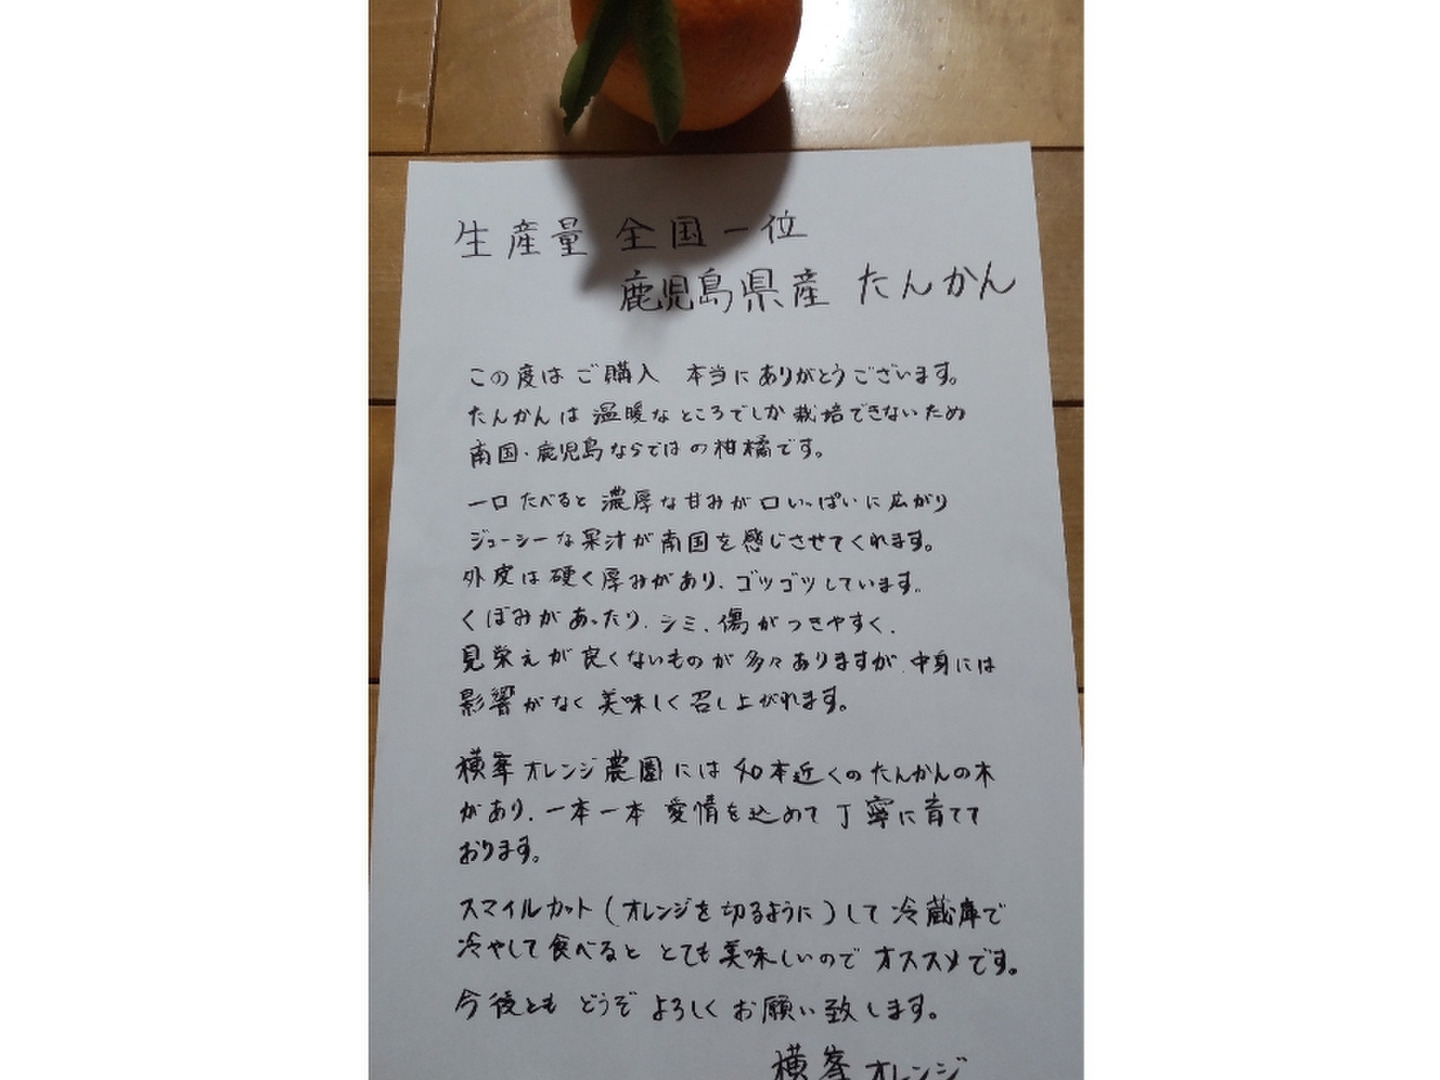 生産量 全国一位
鹿児島県産 たんかん
この度は ご購入 本当に ありがとうございます。
たんかんは 温暖な ところでしか 栽培できないため
南国・鹿児島ならではの柑橘です。
一口 たべると 濃厚な 甘みが 口いっぱいに 広がり
ジューシーな 果汁が 南国を 感じさせてくれます。
外皮は 硬く 厚みがあり、ゴツゴツしています。
くぼみが あったり、シミ、傷がつきやすく、
見栄えが 良くないものが 多々ありますが、中身には
影響がなく 美味しく 召し上がれます。
横峯オレンジ農園には 40本近くのたんかんの木
があり、一本一本 愛情を込めて 丁寧に育てて
おります。
スマイルカット(オレンジを切るように)して 冷蔵庫で
冷やして食べると とても 美味しいので オススメです。
今後とも どうぞ よろしく お願い致します。
横峯オレンジ